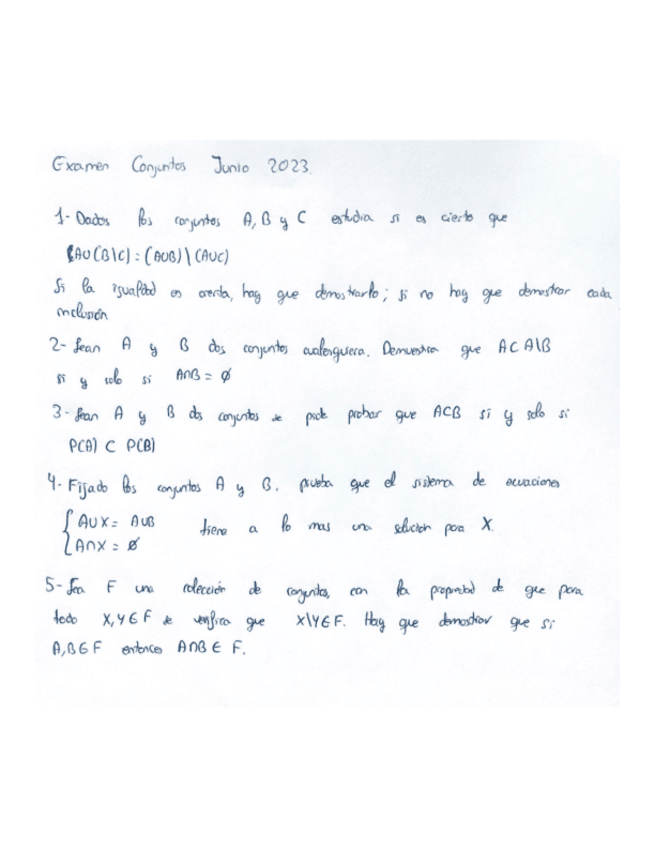 Examen Conjuntos Junio 2023.
1- Dados los conjuntos A, B y C estudia si es cierto que
(AU(B\C) = (AUB) \ (AUC)
Si la igualdad es cierta, hay que demostrarlo; si no hay que demostrar cada
inclusión
2- Sean A y B dos conjuntos cualesquiera. Demuestra que A ⊂ A\B
si y solo si A∩B = ∅
3- Sean A y B dos conjuntos se pide probar que A⊂B si y solo si
P(A) ⊂ P(B)
4- Fijado los conjuntos A y B. prueba que el sistema de ecuaciones
{ A∪X = A∪B
A∩X = ∅ tiene a lo mas una solución para X.
5- Sea F una colección de conjuntos, con la propiedad de que para
todo X,Y ∈ F se verifica que X\Y ∈ F. Hay que demostrar que si
A,B ∈ F entonces A∩B ∈ F.